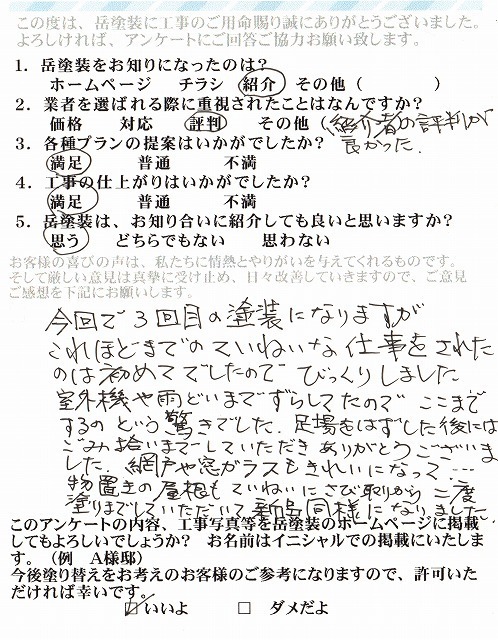 この度は、岳塗装に工事のご用命賜り誠にありがとうございました。
よろしければ、アンケートにご回答ご協力お願い致します。
1．岳塗装をお知りになったのは？
ホームページ　チラシ　紹介　その他（　　　　）
2．業者を選ばれる際に重視されたことはなんですか？
価格　対応　評判　その他（紹介者の評判が
良かった．
3．各種プランの提案はいかがでしたか？
満足　普通　不満
4．工事の仕上がりはいかがでしたか？
満足　普通　不満
5．岳塗装は、お知り合いに紹介しても良いと思いますか？
思う　どちらでもない　思わない
お客様の喜びの声は、私たちに情熱とやりがいを与えてくれるものです。
そして厳しい意見は真摯に受け止め、日々改善していきますので、ご意見
ご感想を下記にお願いします。
今回で3回目の塗装になりますが
これほどまでのていねいな仕事をされた
のは初めてでしたので びっくりしました
室外機や雨どいまでずらしてたので ここまで
するの という驚きでした．足場をはずした後には
ごみ拾いまでしていただき ありがとうございい
ました．網戸や窓ガラスもきれいになって…
物置きの屋根もていねいにさび取りから 二度
塗りまでしていただいて新品同様になりました．
このアンケートの内容、工事写真等を岳塗装のホームページに掲載
してもよろしいでしょうか？　お名前はイニシャルでの掲載にいたしま
す。（例　A様邸）
今後塗り替えをお考えのお客様のご参考になりますので、許可いた
だければ幸いです。
☑ いいよ　□ ダメだよ